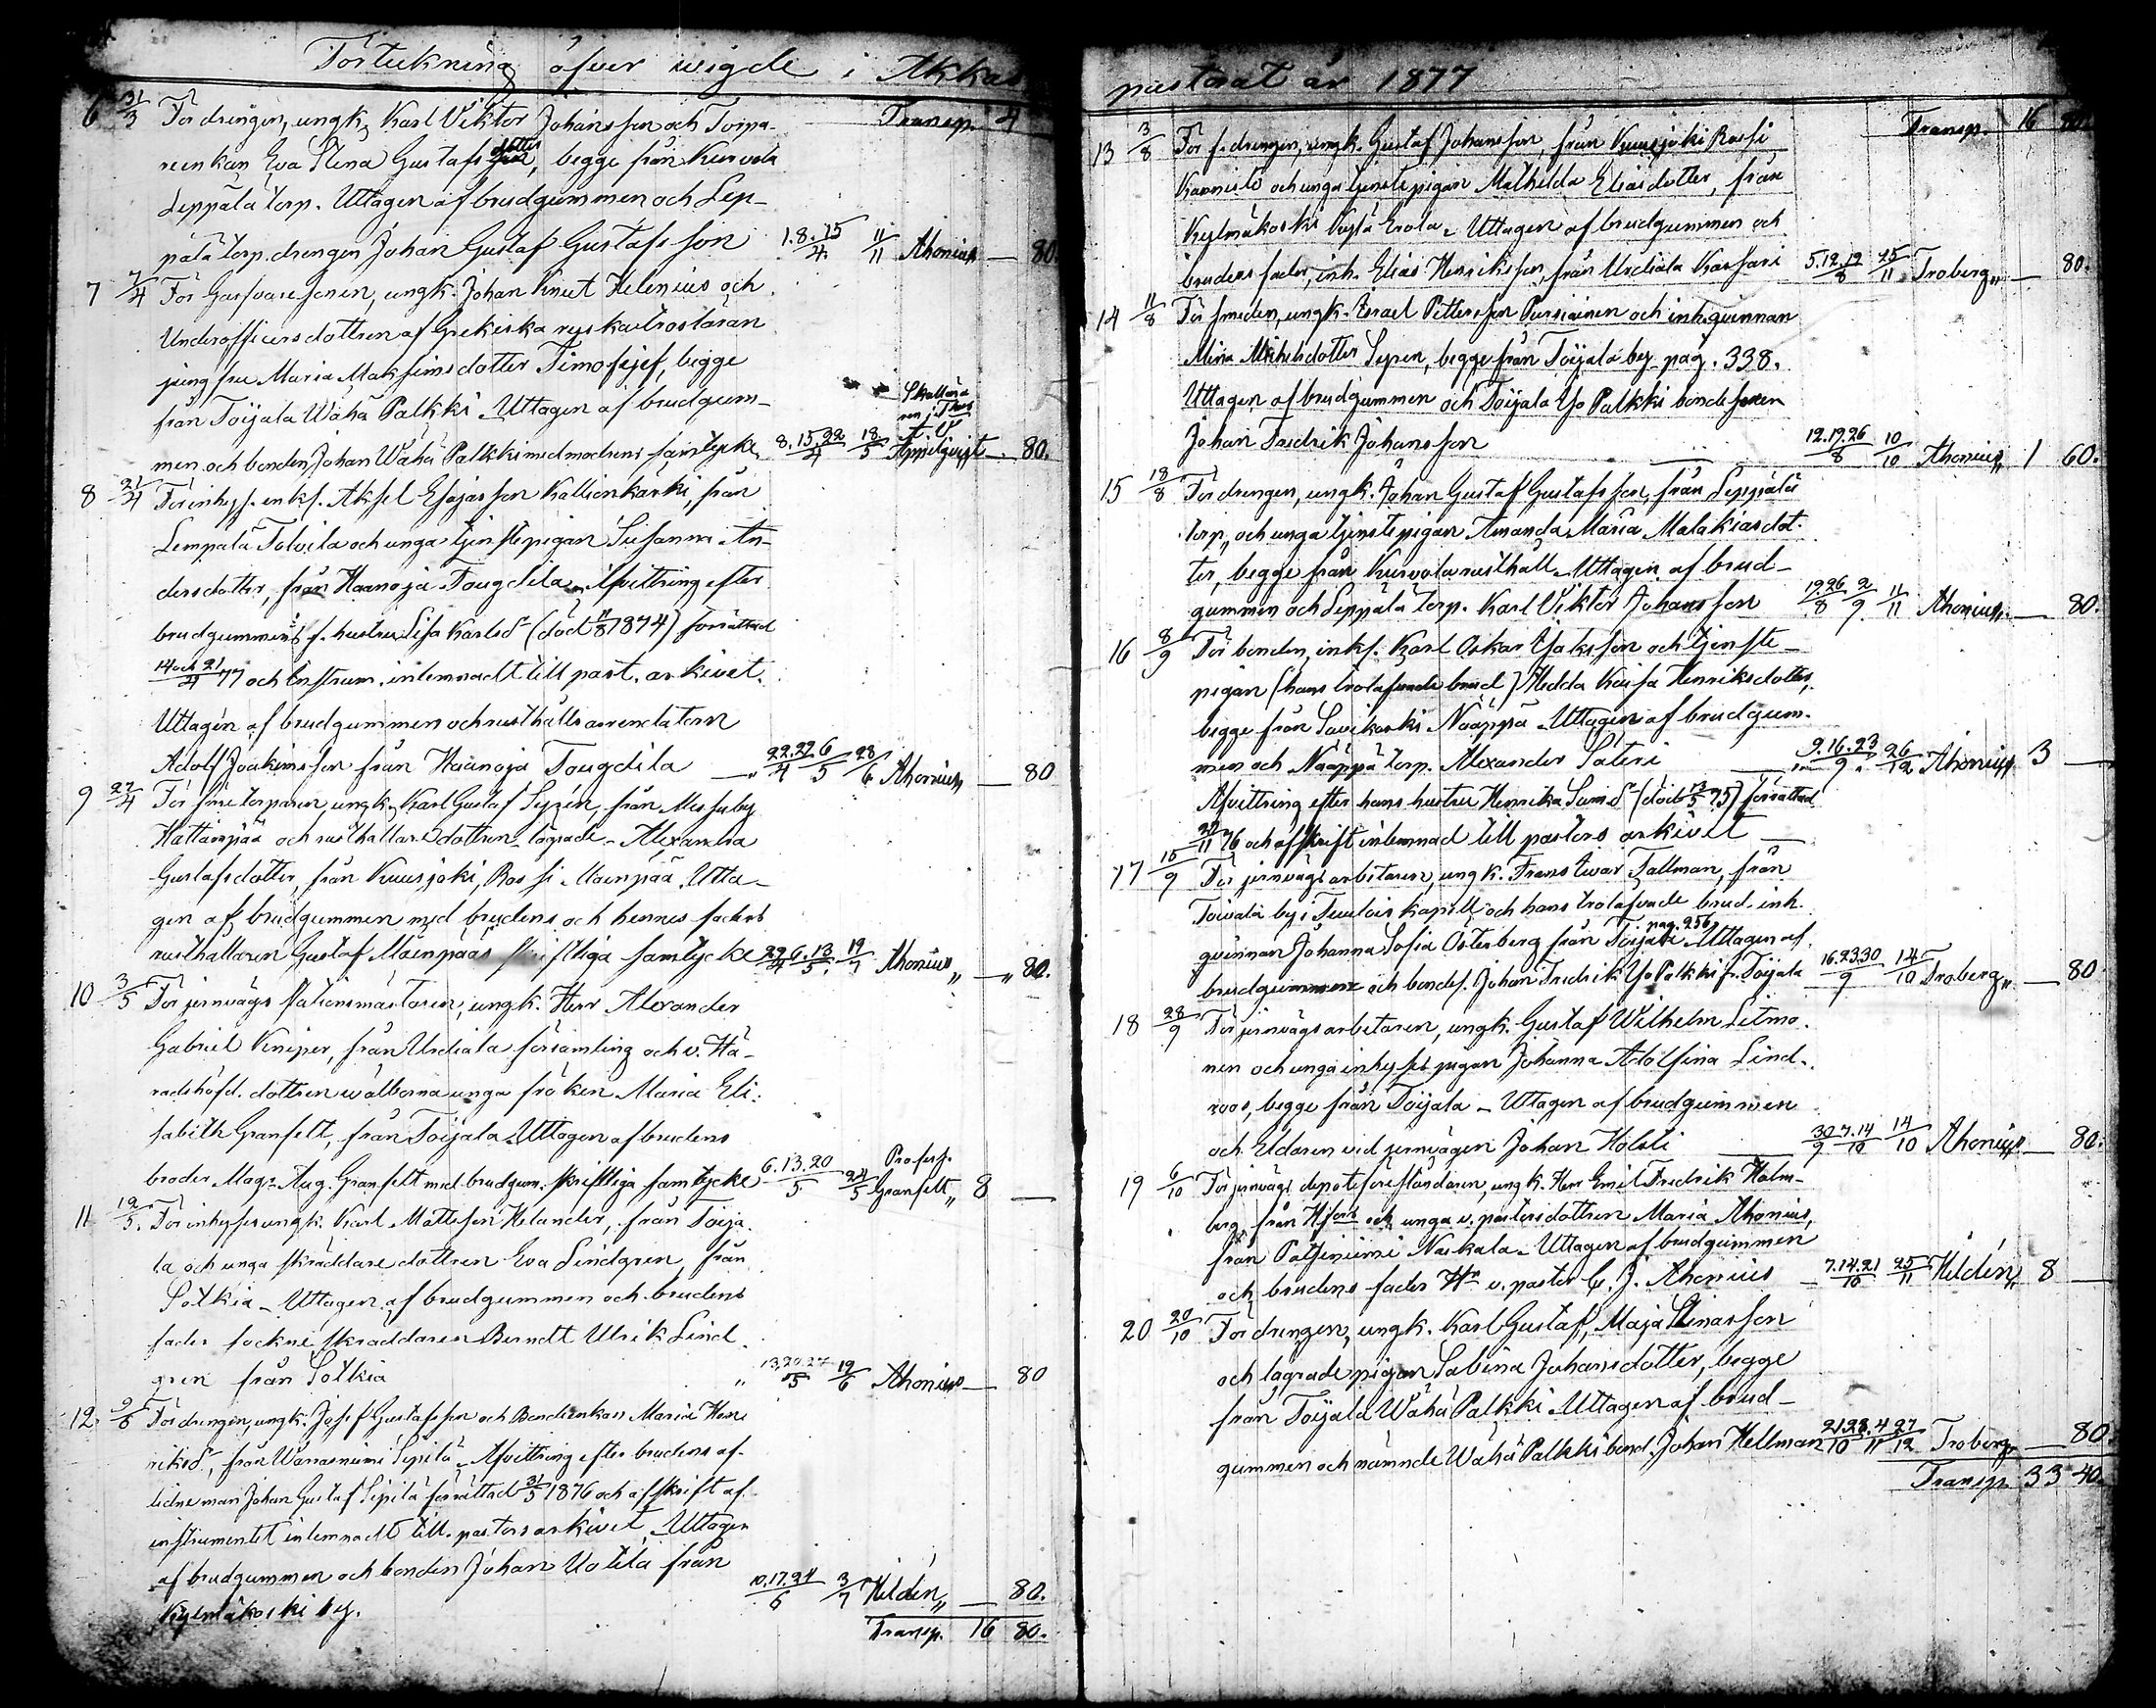 Förteckning öfver wigde i Akkas
Transp. 4
6 31/3 För drengen, ungk. Karl Viktor Johansson och Torpa-
reenkan Eva Stina Gustafsdotter, begge från Kurvola
Leppälä torp. Uttagen af brudgummen och Lep-
pälä torp. drengen Johan Gustaf Gustafsson 1.8.15/4 11/11 Ahonius — 80.
7 7/4 För Garfvaresonen, ungk. Johan Knut Helenius och
Underofficersdottren af Grekiska ryska trosläran
jungfru Maria Maksimsdotter Timofejef, begge
från Toijala Wähä Palkki. Uttagen af brudgum-
men och bonden Johan Wähä Palkki med modrens samtycke 8.15.22/4 18/5 Appelqvist — 80.
8 21/4 För inhys. enkl. Aksel Esajasson Kallionkarki, från
Lempälä Tolvila och unga tjenstepigan Susanna An-
dersdotter, från Haanoja Tougdila. Afvittring efter
brudgummens f. hustru Lisa Karlsdr (död 11/8 1874) förrättad
14 och 21/4 77 och Instrum. inlemnadt till past. arkivet.
Uttagen af brudgummen och rusthållsarrendatorn
Adolf Joakimsson från Haanoja Tougdila — 22.29/4 6/5 28/6 Ahonius — 80
9 27/4 För torparen ungk. Karl Gustaf Syrén, från Messuby
Hattanpää och rusthållaredottren lägrade Alexandra
Gustafsdotter, från Kuusjoki, Rossi Mäenpää. Utta-
gen af brudgummen med brudens och hennes faders
rusthållaren Gustaf Mäenpääs skriftliga samtycke 29/4 6.13/5 19/7 Ahonius — 80.
10 3/5 För jernvägs stationsmästaren, ungk. Herr Alexander
Gabriel Kniper, från Urdiala församling och v. Hä-
radshöfd. dottren wälborna unga fröken Maria Eli-
sabeth Granfelt, från Toijala. Uttagen af brudens
broder Magr Aug. Granfelt med brudgum. skriftliga samtycke 6.13.20/5 24/5 Profess. Granfelt 8 —
11 12/5 För inhyses ungk. Karl Mattsson Helander, från Toija-
la och unga skräddaredottren Eva Lindgren, från
Sotkia. Uttagen af brudgummen och brudens
fader sockneskräddaren Berndt Ulrik Lind-
gren från Sotkia 13.20.27/5 19/6 Ahonius — 80
12. 9/6 För drengen, ungk. Josef Gustafsson och Bondeenkan Maria Hen-
riksdr, från Warraniemi Sipilä. Afvittring efter brudens af-
lidne man Johan Gustaf Sipilä förrättad 31/5 1876 och afskrift af
instrumentet inlemnadt till pastorsarkivet. Uttagen
af brudgummen och bonden Johan Uotila från
Kylmäkoski by. 10.17.24/6 3/7 Hildén — 80.
Transp. 16 80.
pastorat år 1877
Transp. 16 80.
13 3/8 För f. drengen, ungk. Gustaf Johansson, från Kuusjoki Rossi
Kannisto och unga tjenstepigan Mathilda Eliasdotter, från
Kylmäkoski Kylä Erola. Uttagen af brudgummen och
brudens fader, inh. Elias Henriksson, från Urdiala Karsari 5.12.19/8 25/11 Troberg — 80.
14 11/8 För smeden, ungk. Israel Pettersson Pursiainen och inh. qvinnan
Mina Mikelsdotter Syren, begge från Toijala by pag. 338.
Uttagen af brudgummen och Toijala Yo Palkki bondesonen
Johan Fredrik Johansson 12.19.26/8 10/10 Ahonius 1 60.
15 18/8 För drengen, ungk. Johan Gustaf Gustafsson, från Leppälä
torp, och unga tjenstepigan Amanda Maria Malakiasdot-
ter, begge från Kurvola rusthåll. Uttagen af brud-
gummen och Leppälä torp. Karl Viktor Johansson 19.26/8 2/9 11/11 Ahonius — 80.
16 8/9 För bonden, enkl. Karl Oskar Isaksson och tjenste-
pigan (hans trolofvade brud) Hedda Kaisa Henriksdotter,
begge från Savikoski Nääppä. Uttagen af brudgum-
men och Nääppä torp. Alexander Säteri 9.16.23/9 26/12 Ahonius 3 —
Afvittring efter hans hustru Henrika Samdr (död 13/5 75) förrättad
22/11 76 och afskrift inlemnad till pastors arkivet —
17 15/9 För jernvägsarbetaren, ungk. Frans Iwar Fallman, från
Toivala by i Tuulois kapell och hans trolofvade brud. inh.
qvinnan Johanna Sofia Österberg från Toijala pag. 256. Uttagen af
brudgummen och bondes. Johan Fredrik Yo Palkki fr. Toijala 16.23.30/9 14/10 Troberg — 80.
18 28/9 För jernvägsarbetaren, ungk. Gustaf Wilhelm Litmo-
nen och unga inhyses pigan Johanna Adolfina Lind-
roos, begge från Toijala. Uttagen af brudgummen
och Eldaren vid jernvägen Johan Holsti 30/9 7.14/10 14/10 Ahonius — 80.
19 6/10 För jernvägs depotföreståndaren, ungk. Herr Emil Fredrik Holm-
berg, från Hfors och unga v. pastorsdottren Maria Ahonius,
från Patsiniemi Naskala. Uttagen af brudgummen
och brudens fader Hr v. pastor C. J. Ahonius — 7.14.21/10 25/11 Hildén 8 —
20 20/10 För drengen, ungk. Karl Gustaf, Maja Stinasson
och lägrade pigan Sabina Johansdotter, begge
från Toijala Wähä Palkki. Uttagen af brud-
gummen och nämnde Wähä Palkki bond. Johan Hellman 21.28/10 4/11 27/12 Troberg — 80.
Transp. 33 40.